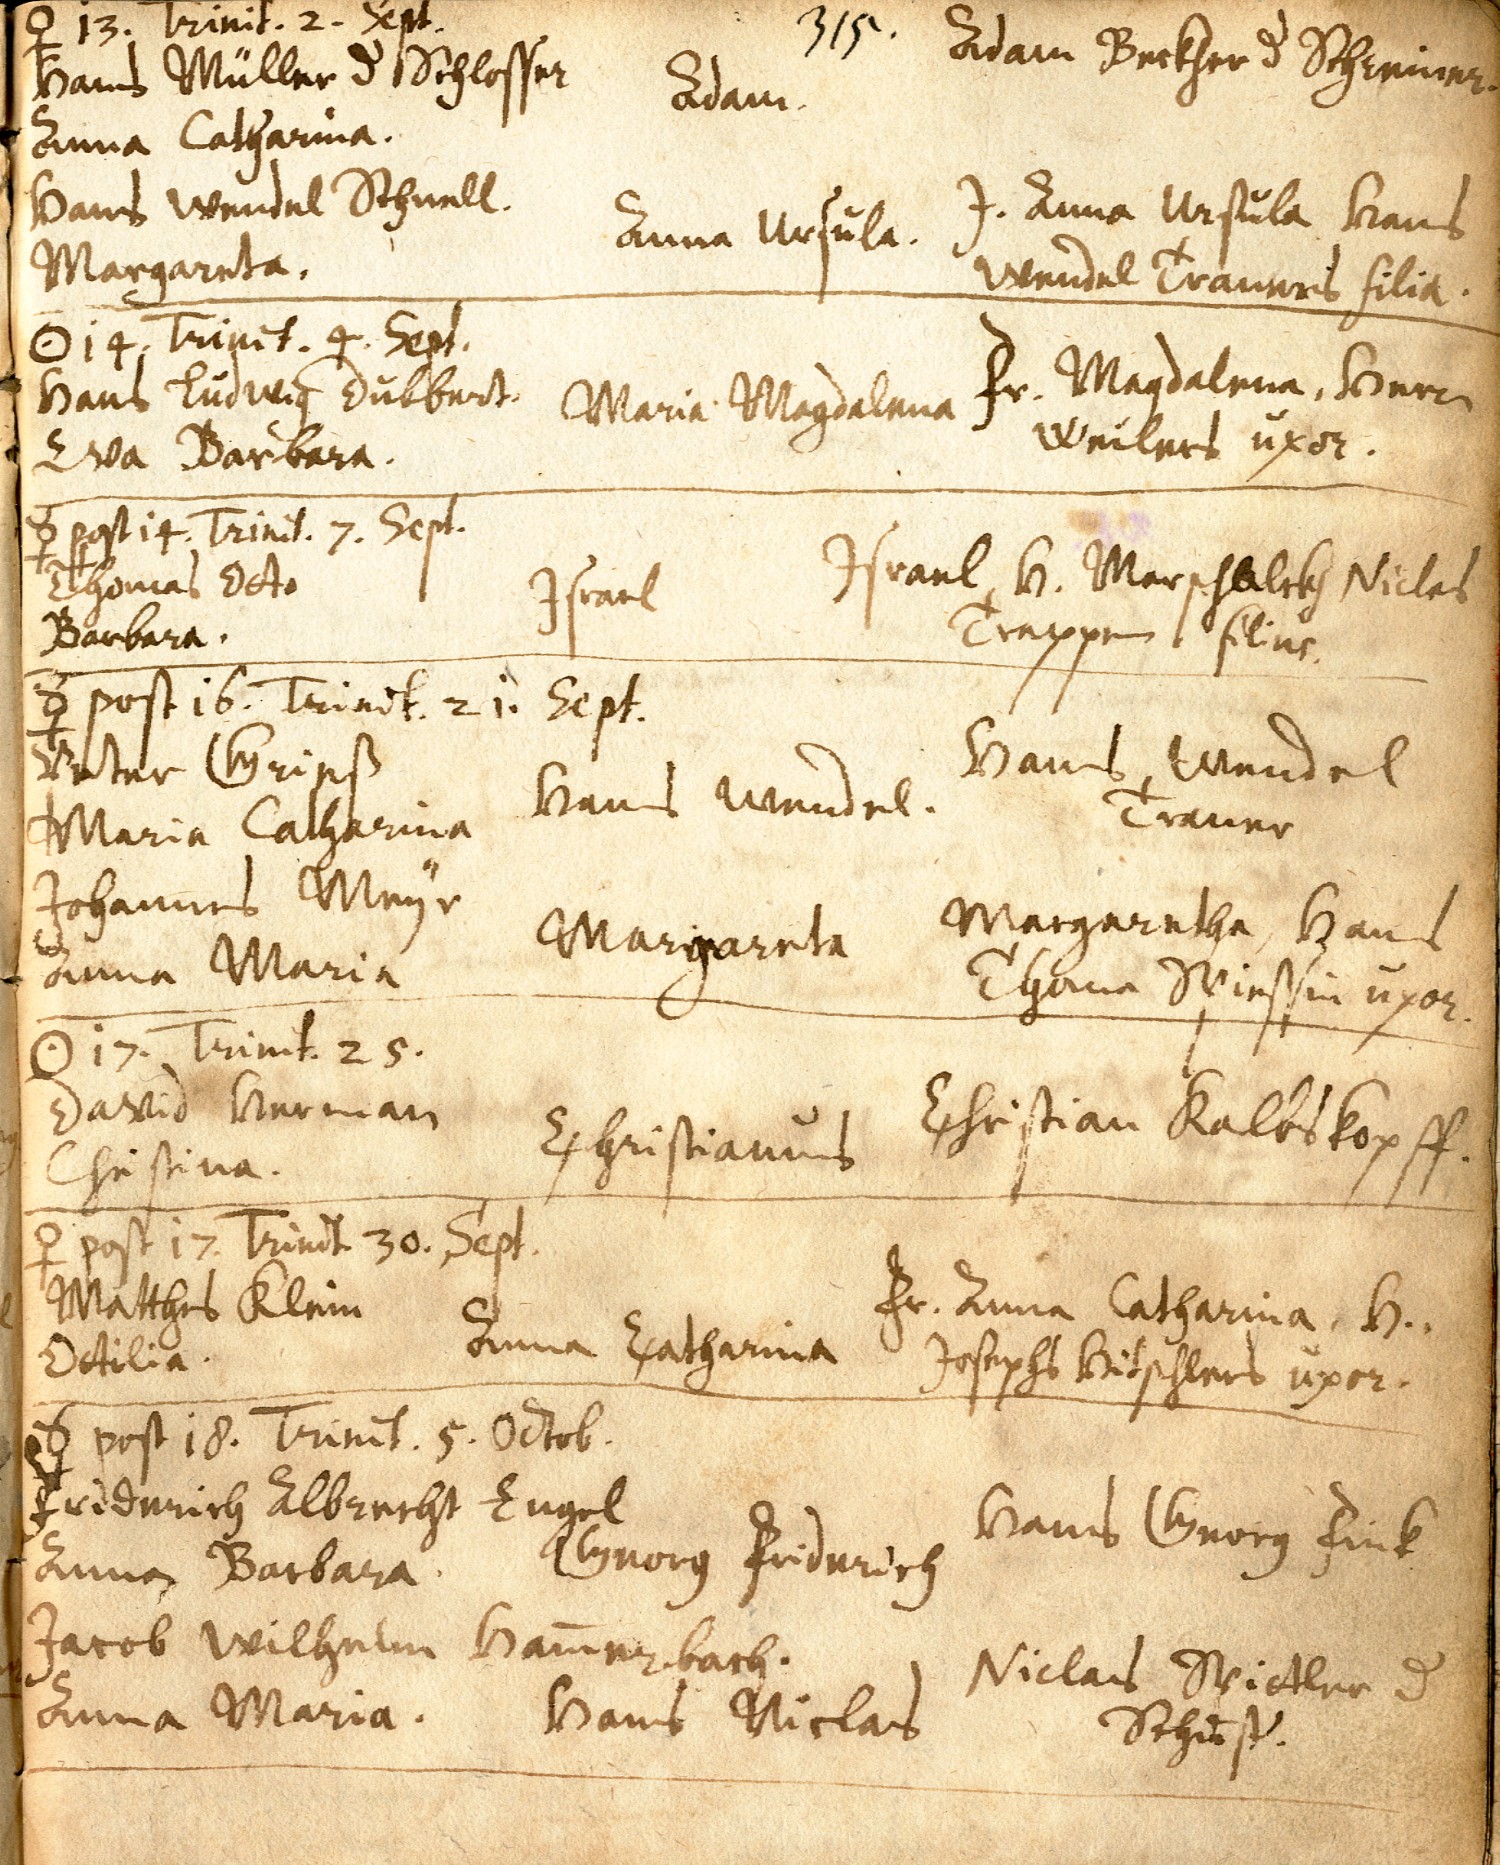 315.
♀ 13. Trinit. 2. Sept.
Hans Müller d Schlosser
Anna Catharina.
Adam.
Adam Beckher d Schreiner.
Hans Wendel Schnell.
Margareta.
Anna Ursŭla.
J. Anna Ursŭla Hans
Wendel Trauers filia.
☉ 14. Trinit. 4. Sept.
Hans Ludwig Dubbert.
Eva Barbara.
Maria Magdalena
Fr. Magdalena, Herr
Weilers uxor.
☿ post 14. Trinit. 7. Sept.
Thomas Otto
Barbara.
Israel
Israel, H. Marschalckh Niclas
Trappen filius.
☿ post 16. Trinit. 21. Sept.
Peter Grieß
Maria Catharina
Hans Wendel.
Hans Wendel
Trauer
Johannes Meÿr
Anna Maria
Margareta
Margaretha, Hans
Thoma uxor.
☉ 17. Trinit. 25.
David Herman
Christina.
Christianus
Christian Kalbskopff.
♀ post 17. Trinit. 30. Sept.
Matthes Klein
Ottilia.
Anna Catharina
Fr. Anna Catharina, H.
Josephs Hitschlers uxor.
☿ post 18. Trinit. 5. Octob.
Friderich Albrecht Engel
Anna Barbara.
Georg Friderich
Hans Georg Fink
Jacob Wilhelm Ham̄erbach.
Anna Maria.
Hans Niclas
Niclas d